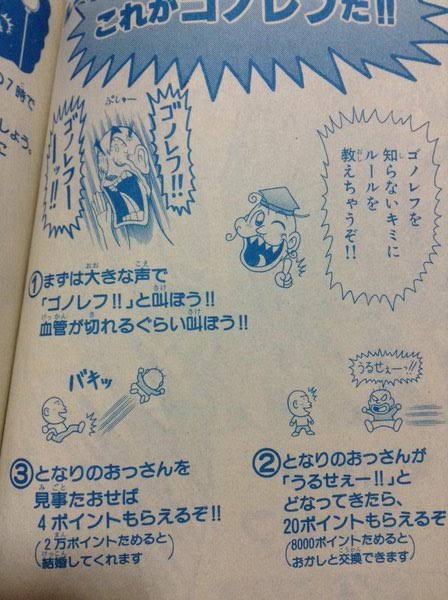 これがゴノレフだ!!
の7時で
しょう。
に
ゴノレフを
知らないキミに
ルールを
教えちゃうぞ!!
ぷしゅー
ゴノレフ!!
ゴノレフーーッ!!
①まずは大きな声で
「ゴノレフ!!」と叫ぼう!!
血管が切れるぐらい叫ぼう!!
うるせぇーッ!!
②となりのおっさんが
「うるせぇー!!」と
どなってきたら、
20ポイントもらえるぞ
(8000ポイントためると
おかしと交換できます)
バキッ
③となりのおっさんを
見事たおせば
4ポイントもらえるぞ!!
(2万ポイントためると
結婚してくれます)